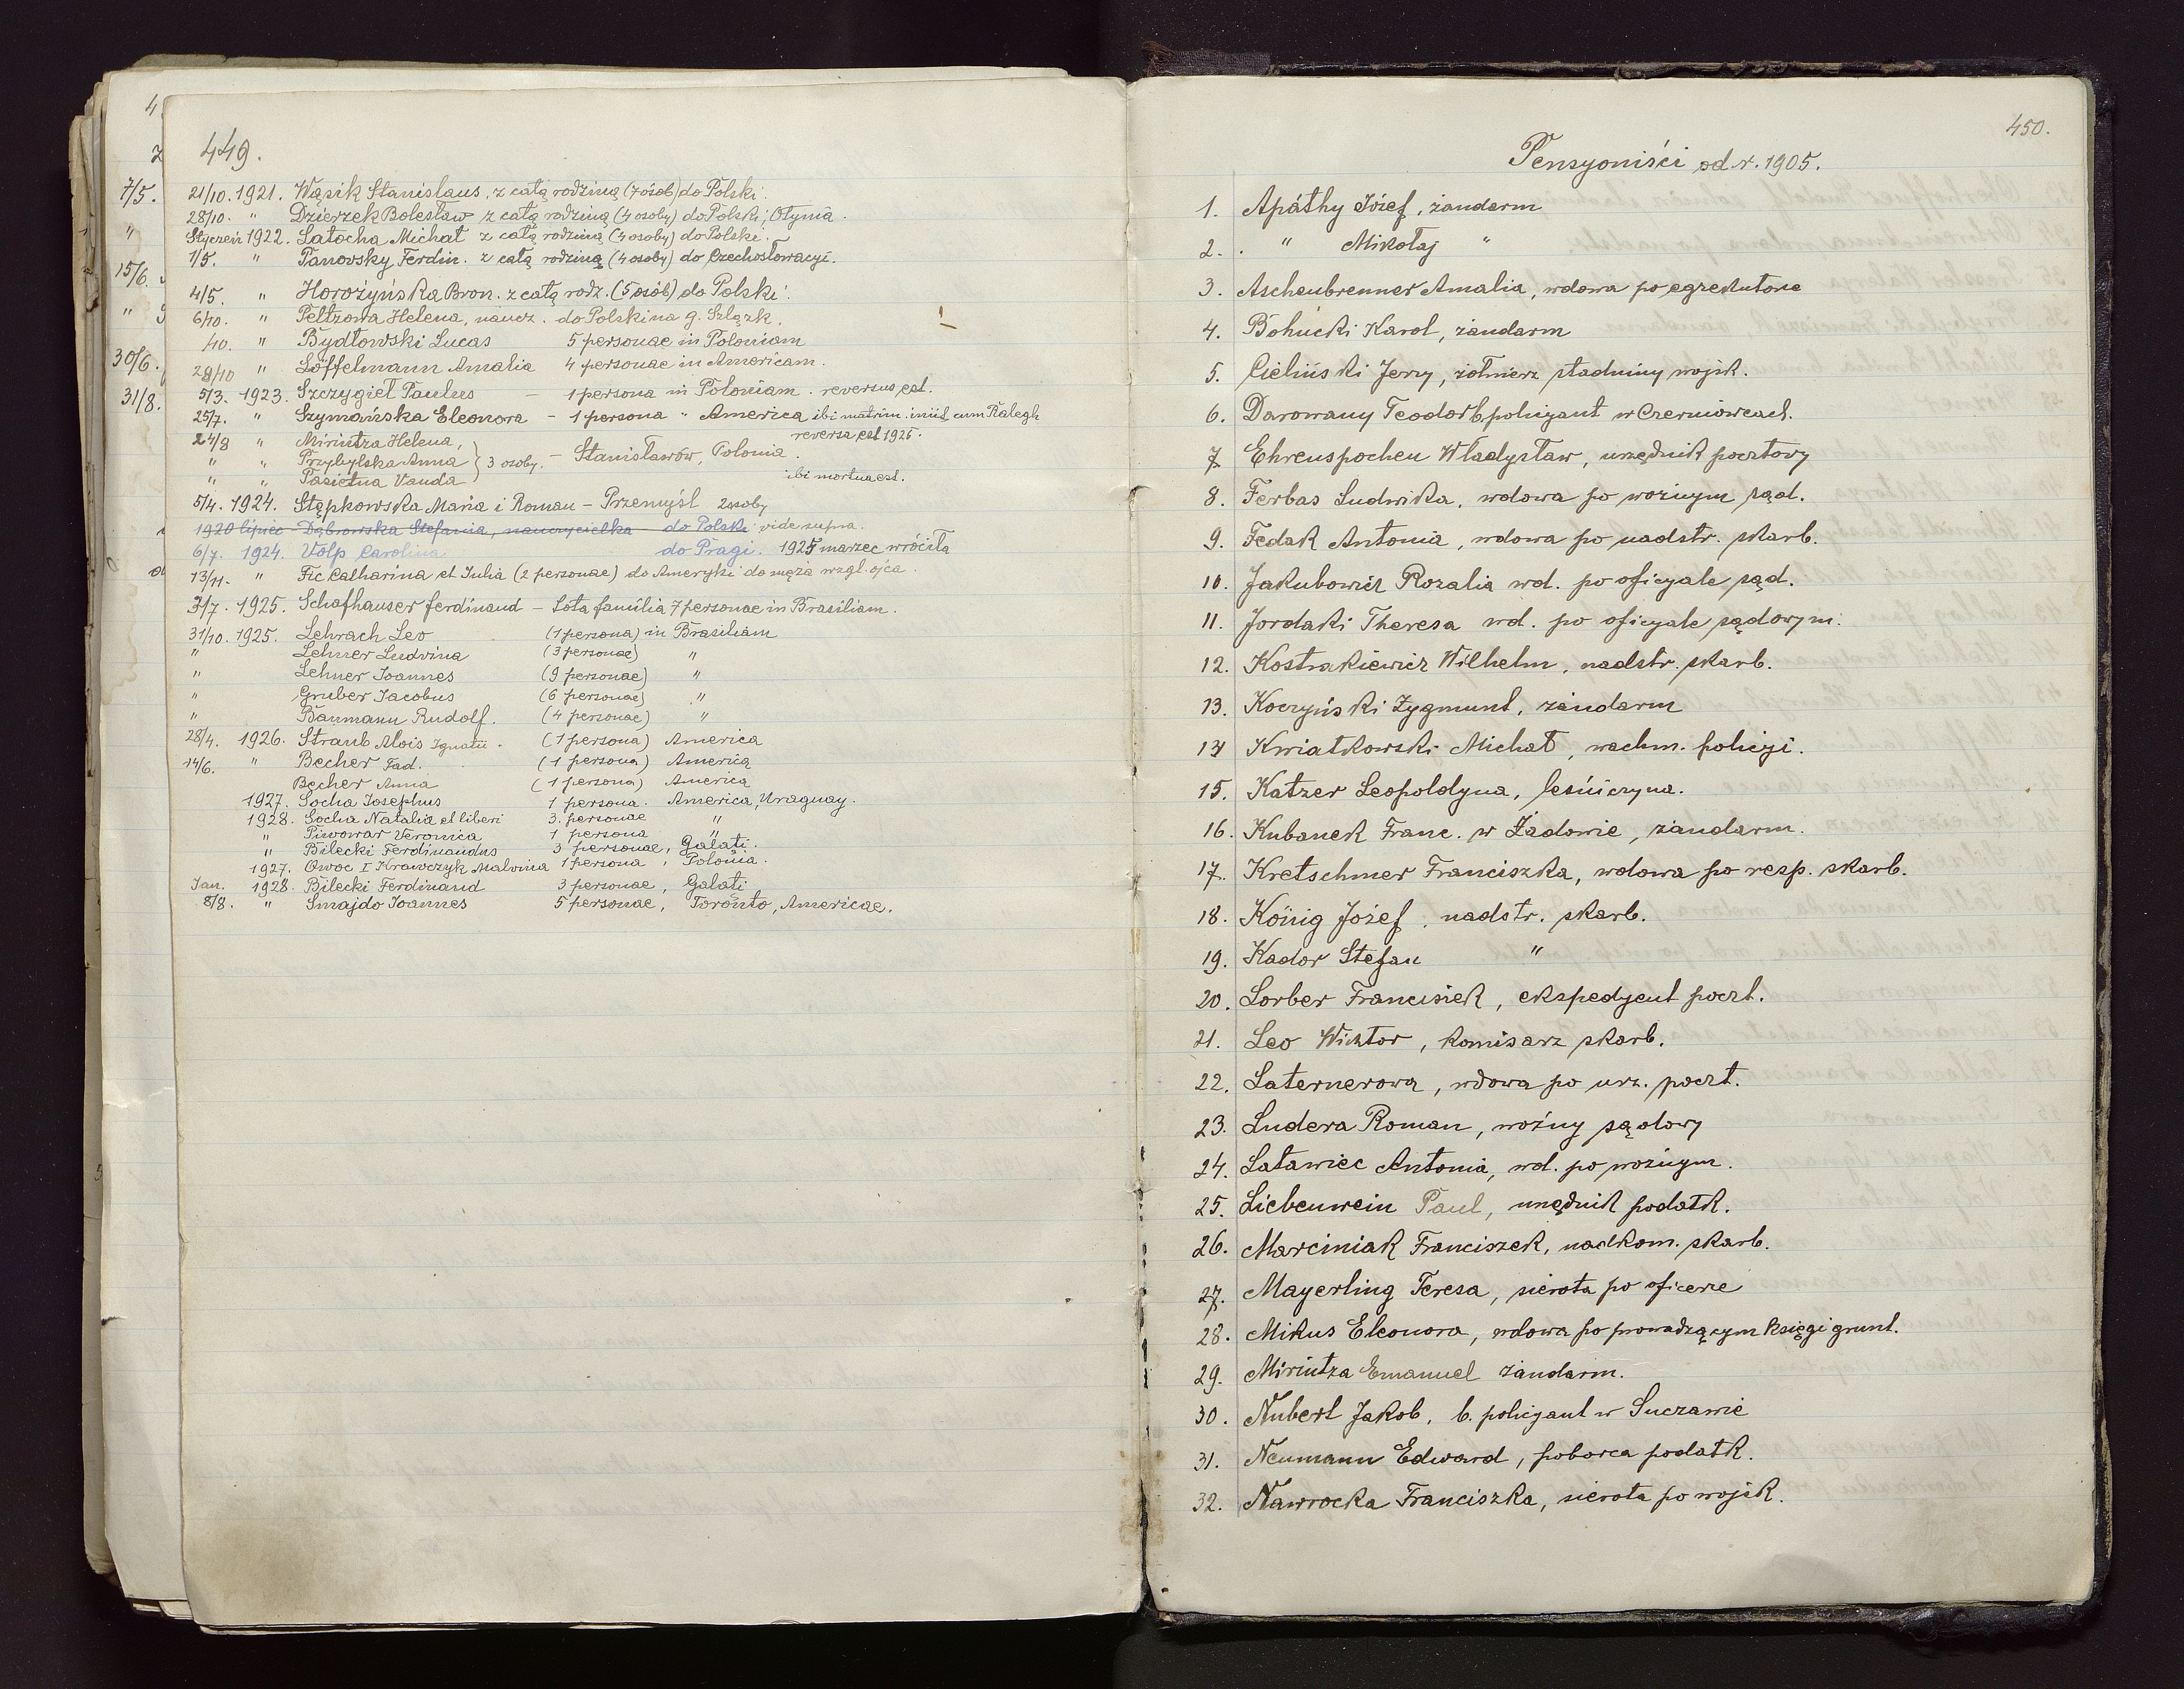 449.
21/10. 1921. Wąsik Stanislaus, z całą rodziną (7 osób) do Polski.
28/10. " Dzierzek Bolesław z całą rodziną (4 osoby) do Polski, Otynia.
Styczeń 1922. Latocha Michał z całą rodziną (4 osoby) do Polski.
1/5. " Panovsky Ferdin. z całą rodziną (4 osoby) do Czechosłowacyi.
4/5. " Horożyńska Bron. z całą rodz. (5 osób) do Polski.
6/10. " Peltzowa Helena, naucz. do Polski na g. Szlązk.
/10. " Bydłowski Lucas 5 personae in Poloniam
28/10 " Löffelmann Amalia 4 personae in Americam.
5/3. 1923. Szczygieł Paulus – 1 persona in Poloniam. reversus est.
25/7. " Szymańska Eleonora – 1 persona " America ibi matrim. iniit cum Ralegh
reversa est 1925.
24/8 " Mirintza Helena,
" " Przybylska Anna } 3 osoby. – Stanisławów, Polonia.
" " Pasietna Vanda ibi mortua est.
5/4. 1924. Stępkowska Maria i Roman – Przemyśl 2 osoby
1920 lipiec Dąbrowska Stefania, nauczycielka do Polski vide supra.
6/7. 1924. Volp Carolina do Pragi. 1925 marzec wróciła
13/11. " Fic Catharina et Julia (2 personae) do Ameryki do męża wzgl. ojca.
3/7. 1925. Schafhauser Ferdinand – tota familia 7 personae in Brasiliam.
31/10. 1925. Lehrach Leo (1 persona) in Brasiliam
" Lehner Ludvina (3 personae) "
" Lehner Joannes (9 personae) "
" Gruber Jacobus (6 personae) "
" Baumann Rudolf. (4 personae) "
28/4. 1926. Straub Alois Ignatii. (1 persona) America
14/6. " Becher Tad. (1 persona) America
Becher Anna (1 persona) America
1927. Socha Josephus 1 persona. America, Uraguay.
1928. Socha Natalia et liberi 3. personae "
" Piwowar Veronica 1 persona "
" Bilecki Ferdinandus 3 personae, Galati.
1927. Owoc I Krawczyk Malvina 1 persona, Polonia.
Jan. 1928. Bilecki Ferdinand 3 personae, Galati
8/8. " Smajdo Joannes 5 personae, Toronto, Americae.
7/5.
"
15/6.
"
30/6.
31/8.
450.
Pensyoniści od r. 1905.
1. Apáthy Józef, żandarm
2. " Mikołaj "
3. Aschenbrenner Amalia, wdowa po egzekutorze
4. Bohucki Karol, żandarm
5. Cieliński Jerzy, żołnierz stadniny wojsk.
6. Darowany Teodor b. policyant w Czerniowcach.
7. Ehrenspochen Władysław, urzędnik pocztowy
8. Ferbas Ludwika, wdowa po woźnym sąd.
9. Fedak Antonia, wdowa po nadstr. skarb.
10. Jakubowicz Rozalia wd. po oficyale sąd.
11. Jordaki Theresa wd. po oficyale sądowym.
12. Kostrakiewicz Wilhelm, nadstr. skarb.
13. Koczyński Zygmunt, żandarm
14 Kwiatkowski Michał, wachm. policyi.
15. Katzer Leopoldyna, leśniczyna.
16. Kubanek Franc. w Żadowie, żandarm.
17. Kretschmer Franciszka, wdowa po resp. skarb.
18. König Józef, nadstr. skarb.
19. Kador Stefan "
20. Lorber Franciszek, ekspedyent poczt.
21. Leo Wiktor, komisarz skarb.
22. Laternerowa, wdowa po urz. poczt.
23. Ludera Roman, woźny sądowy
24. Latawiec Antonia, wd. po woźnym.
25. Liebenwein Paul, urzędnik podatk.
26. Marciniak Franciszek, nadkom. skarb.
27. Mayerling Teresa, sierota po oficerze
28. Mikus Eleonora, wdowa po prowadzącym księgi grunt.
29. Mirintza Emanuel żandarm.
30. Nubert Jakob, b. policyant w Suczawie
31. Neumann Edward, poborca podatk.
32. Nawrocka Franciszka, sierota po wojsk.